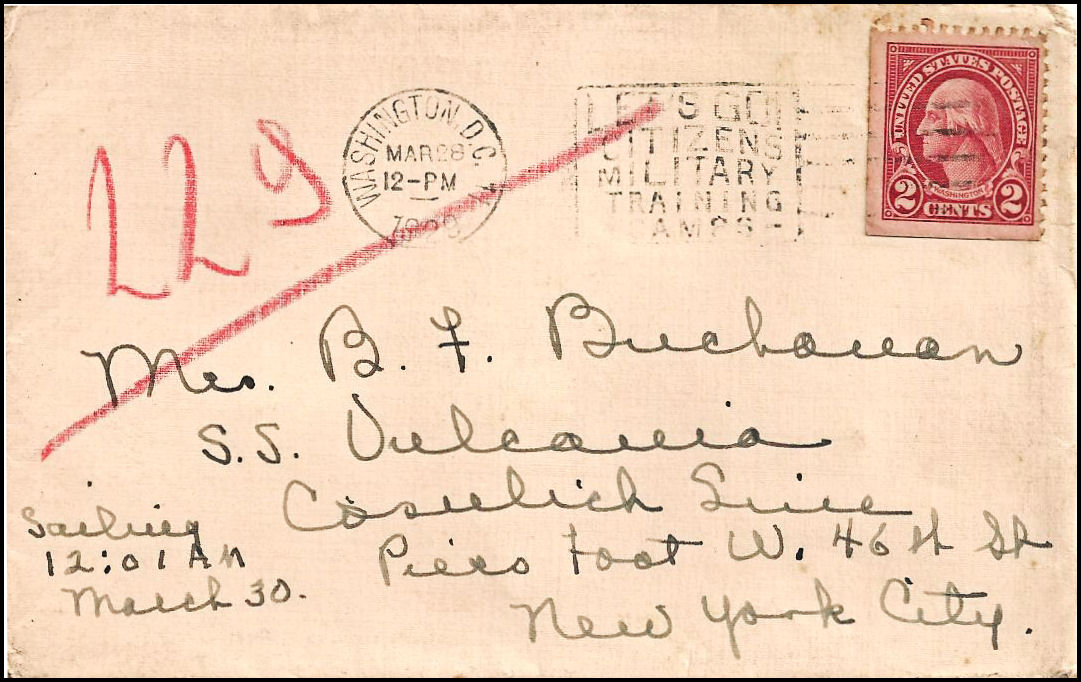 UNITED STATES POSTAGE
WASHINGTON
2 CENTS 2
WASHINGTON, D.C.
MAR 28
12-PM
LET'S GO!
CITIZENS
MILITARY
TRAINING
CAMPS-
229
Mrs. B. F. Buchanan
S.S. Vulcania
Cosulich Line
Piers Foot W. 46th St
New York City.
Sailing
12:01 AM
March 30.